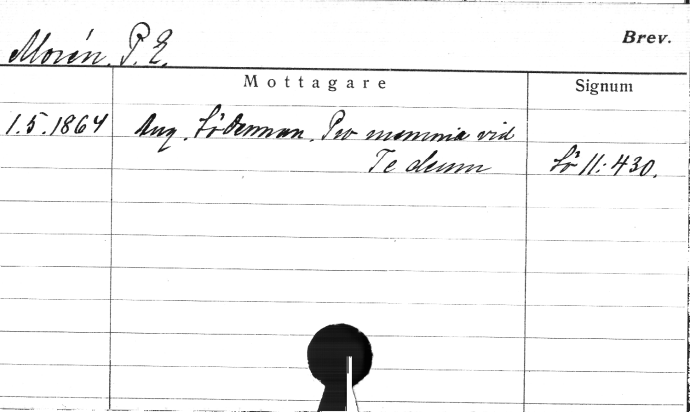 Brev.
Morén, P. E.
Mottagare Signum
1.5.1864 Aug. Söderman. Pro memoria vid
Te deum Sö 11:430.